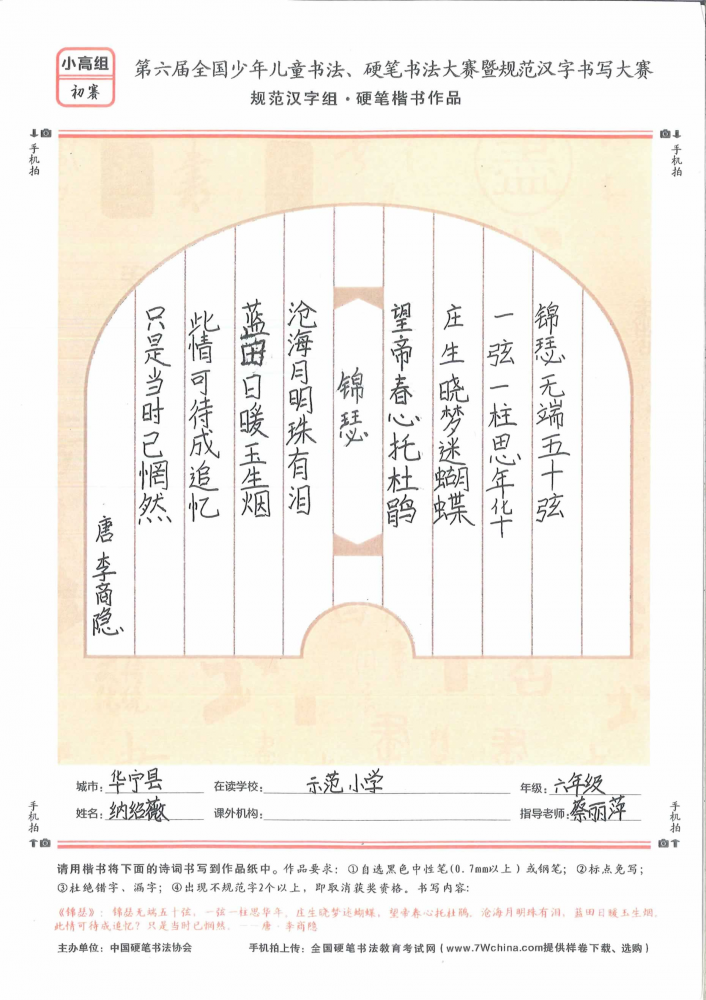 小高组
初赛
第六届全国少年儿童书法、硬笔书法大赛暨规范汉字书写大赛
规范汉字组·硬笔楷书作品
手机拍
手机拍
锦瑟无端五十弦
一弦一柱思年华
庄生晓梦迷蝴蝶
望帝春心托杜鹃
锦瑟
沧海月明珠有泪
蓝田日暖玉生烟
此情可待成追忆
只是当时已惘然
唐 李商隐
城市：华宁县 在读学校：示范小学 年级：六年级
姓名：纳绍薇 课外机构： 指导老师：蔡丽萍
手机拍
手机拍
请用楷书将下面的诗词书写到作品纸中。作品要求：①自选黑色中性笔(0.7mm以上）或钢笔；②标点免写；
③杜绝错字、漏字；④出现不规范字2个以上，即取消获奖资格。书写内容：
《锦瑟》：锦瑟无端五十弦，一弦一柱思华年。庄生晓梦迷蝴蝶，望帝春心托杜鹃。沧海月明珠有泪，蓝田日暖玉生烟。
此情可待成追忆？只是当时已惘然。——唐·李商隐
主办单位：中国硬笔书法协会 手机拍上传：全国硬笔书法教育考试网（www.7Wchina.com提供样卷下载、选购）